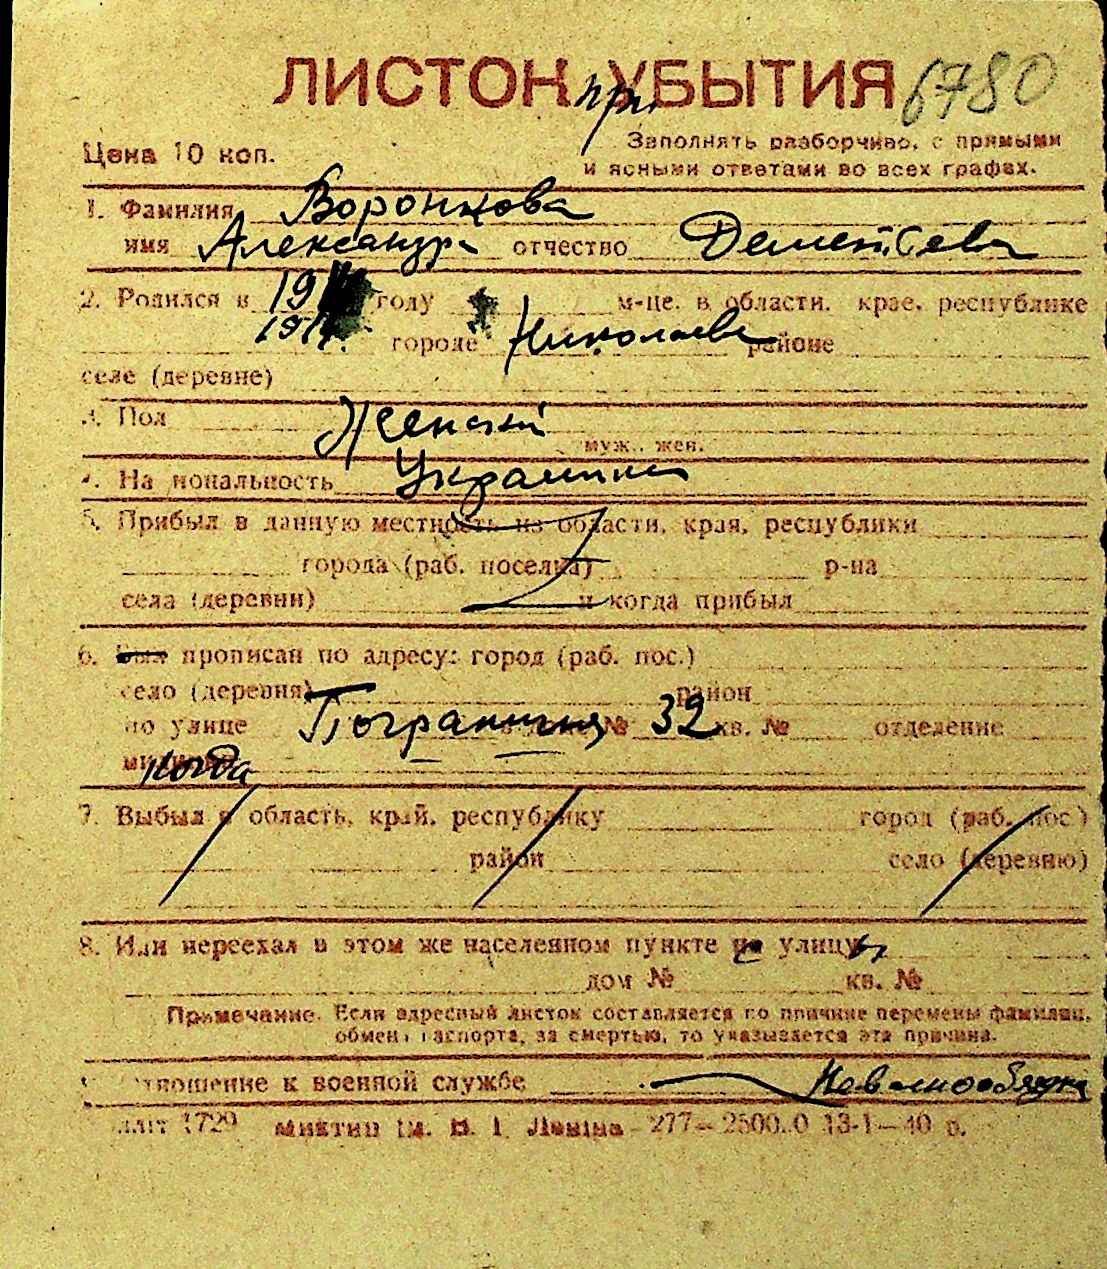 ЛИСТОК при УБЫТИЯ 6780
Цена 10 коп.
Заполнять разборчиво, с прямыми
и ясными ответами во всех графах.
1. Фамилия Воронкова
имя Александра отчество Дементьевна
2. Родился в 19 году м-це. в области. крае, республике
городе Николаеве районе
селе (деревне)
3. Пол Женский
муж., жен.
Украинка
5. Прибыл в данную местность из области, края, республики
города (раб. поселка) р-на
села (деревни) и когда прибыл
6. Был прописан по адресу: город (раб. пос.)
село (деревня) район
по улице Погранична № 32 кв. № отделение
когда
7. Выбыл в область, край, республику город (раб. пос.)
район село (деревню)
8. Или переехал в этом же населенном пункте улицы
дом № кв. №
Примечание. Если адресный листок составляется по причине перемены фамилии,
обмена паспорта, за смертью, то указывается эта причина.
отношение к военной службе Невоеннообязана
1729 277—2500..0 13-1—40 р.